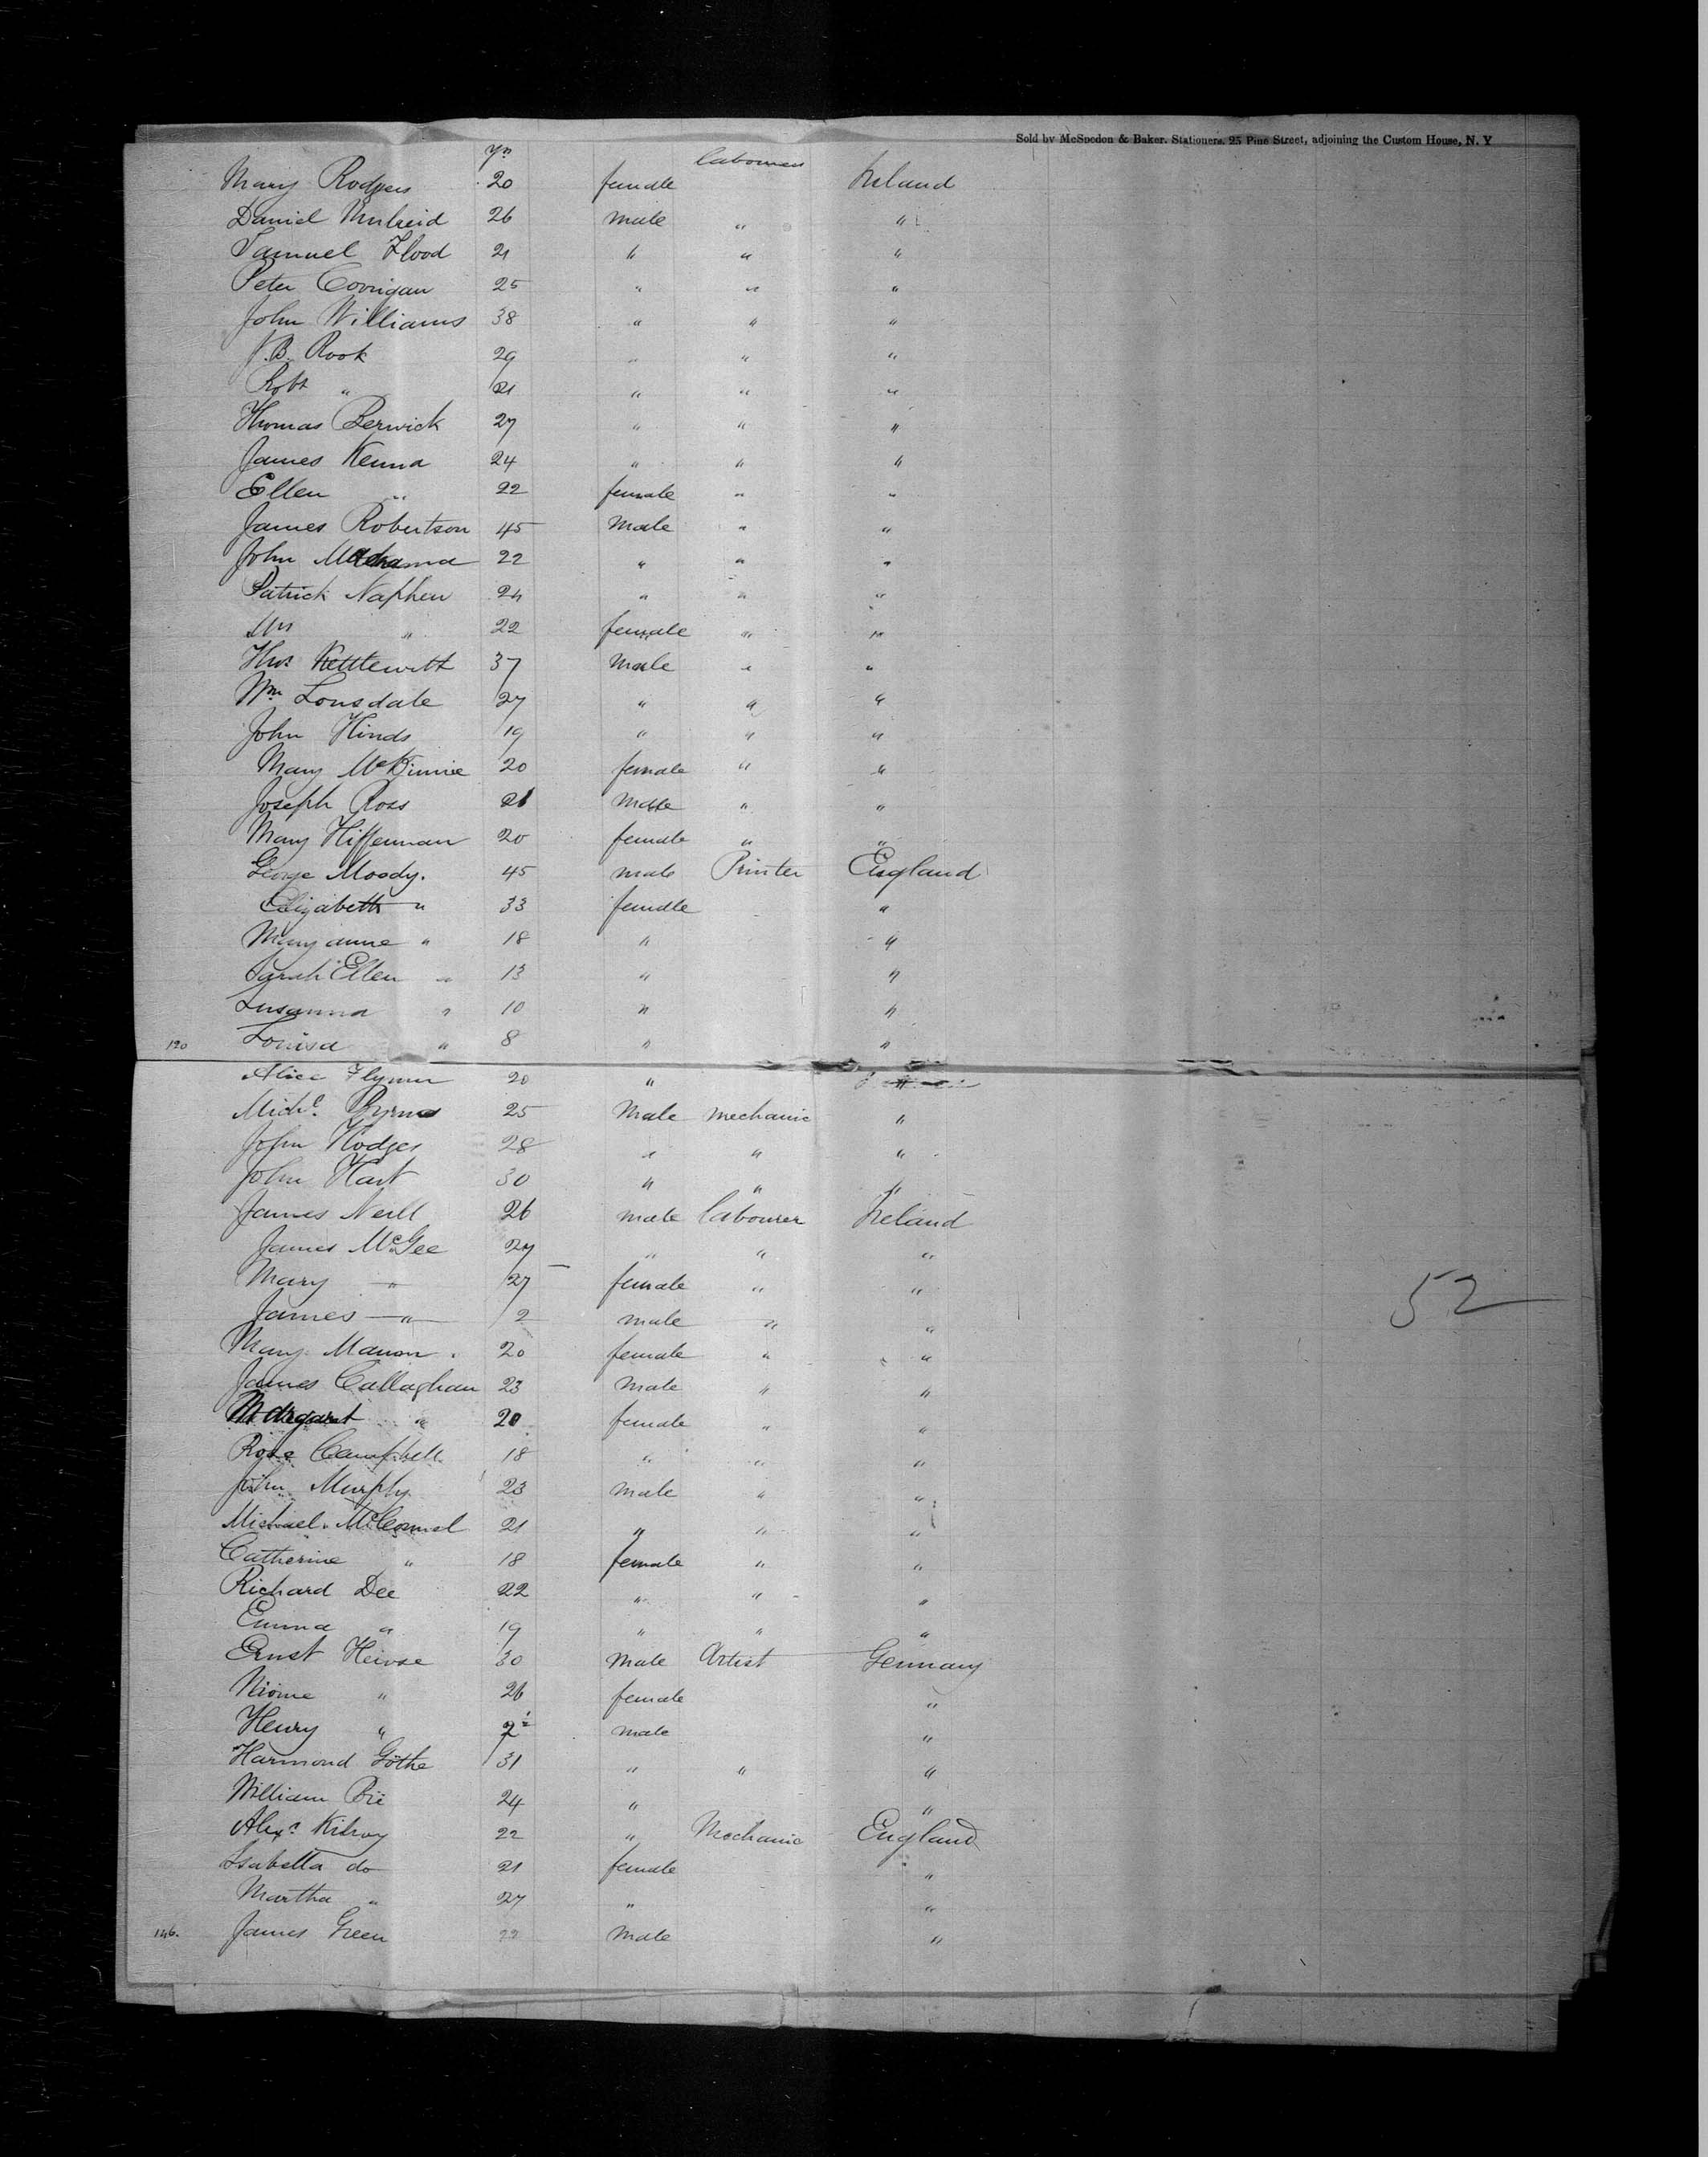 Sold by McSpedon & Baker. Stationers. 25 Pine Street, adjoining the Custom House, N. Y
yrs labourers
Mary Rodgers 20 female Ireland
Daniel 26 male " "
Samuel Flood 21 " " "
Peter Corrigan 25 " " "
John Williams 38 " " "
J.B. Rook 29 " " "
Robt " 21 " " "
Thomas Berwick 27 " " "
James Kenna 24 " " "
Ellen " 22 female " "
James Robertson 45 Male " "
John 22 " " "
Patrick Naphen 24 " " "
Mrs " 22 female " "
Thos 37 Male " "
Wm Lonsdale 27 " " "
John Hinds 19 " " "
Mary McKinnie 20 female " "
Joseph Ross 21 Male " "
Mary Hiffernan 20 female " "
George Moody. 45 male Printer England
Elizabeth " 33 female "
Mary anne " 18 " "
Sarah Ellen " 13 " "
Susanna " 10 " "
120 Louisa " 8 " "
Alice Flynn 20 " "
Michl. Byrnes 25 Male mechanic "
John Hodges 28 " " "
John Hart 30 " " "
James Neill 26 male labourer Ireland
James McGee 27 " " "
Mary " 27 female " "
James " 2 male " "
Mary 20 female " "
James Callaghan 23 Male " "
Margaret " 20 female " "
Rose Campbell 18 " " "
John Murphy 23 male " "
Michael McConnel 21 " " "
Catherine " 18 female " "
Richard Dee 22 " " "
Emma " 19 " " "
Ernst 30 Male Artist Germany
" 26 female "
Henry " 2½ male "
Harmond Göthe 31 " " "
William 24 " "
Alexr Kilroy 22 " Mechanic England
Isabella do 21 female "
Martha " 27 " "
146. James Green 22 Male "
52